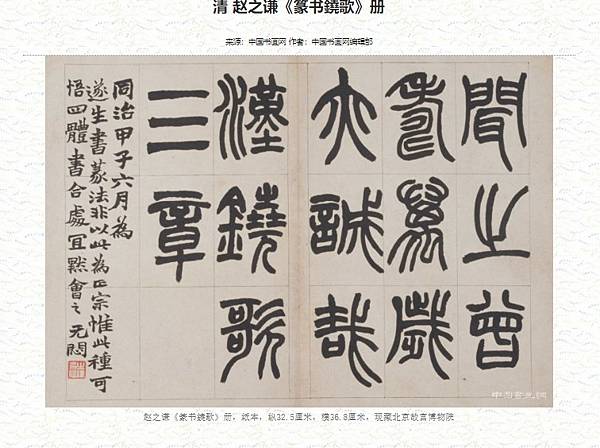 清 赵之谦《篆书鐃歌》册
来源：中国书画网 作者：中国书画网编辑部
聞之曾
壽萬歲
亦誠哉
漢鐃歌
三章
同治甲子六月為
遂生書篆法非以此為正宗惟此種可
悟四體書合處宜默會之 无悶
赵之谦《篆书鐃歌》册，纸本，纵32.5厘米，横36.8厘米，现藏北京故宫博物院